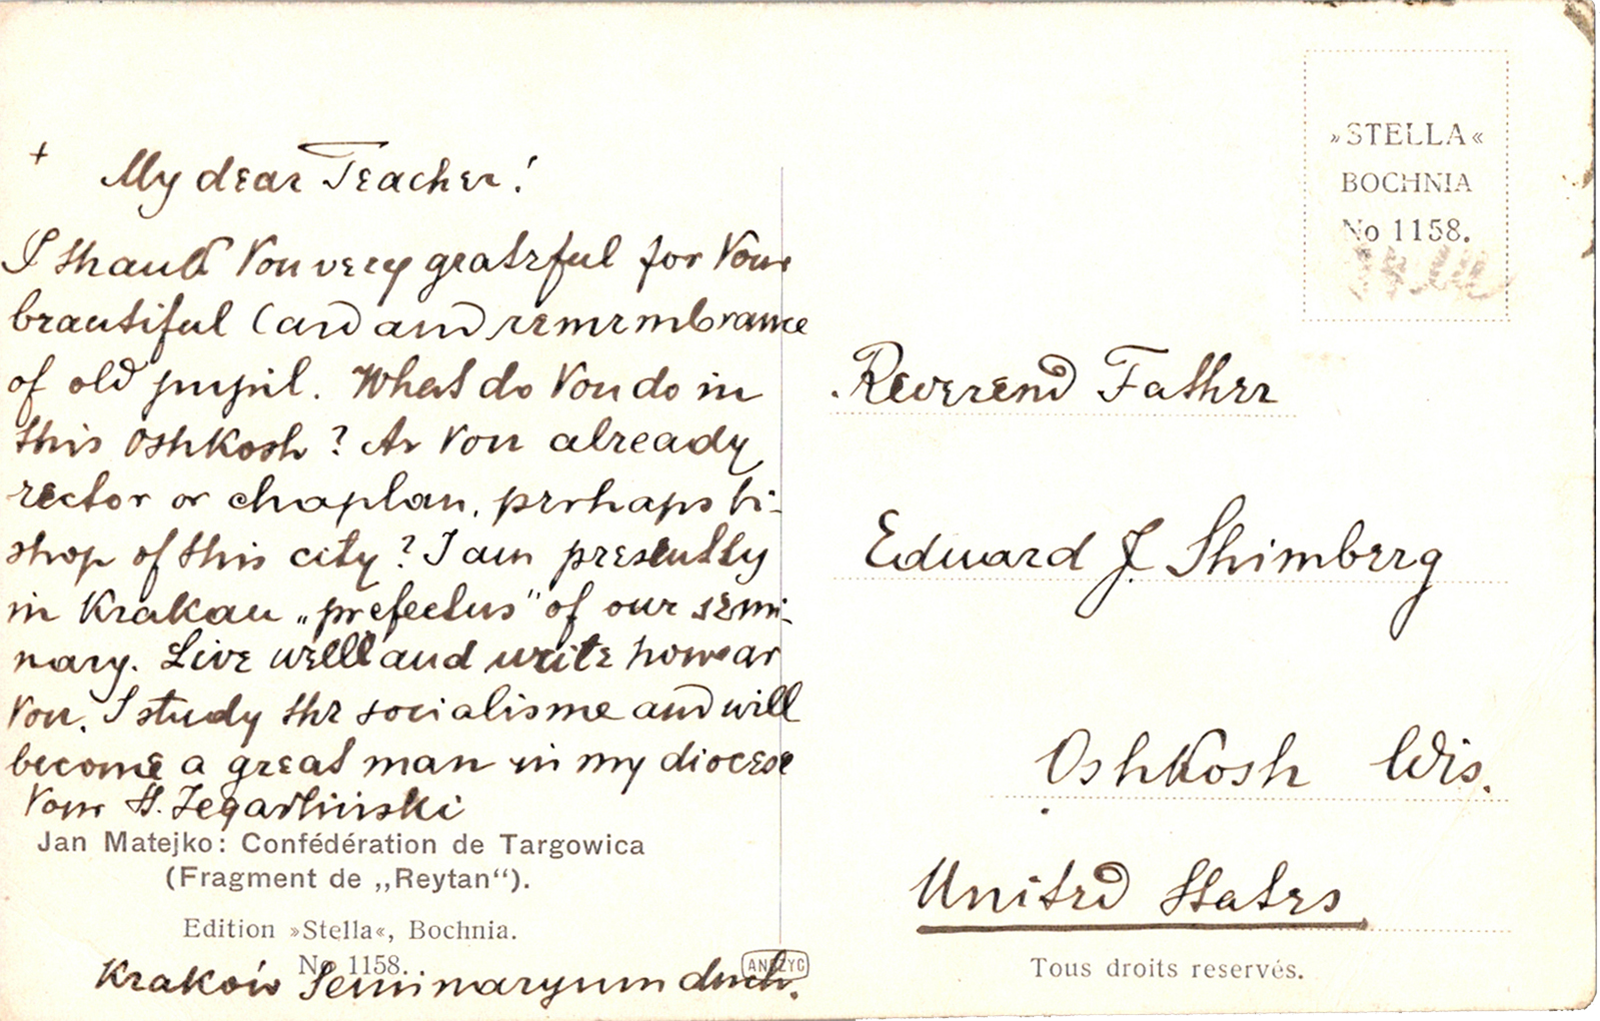 + My dear Teacher!
I thank You very grateful for Your
beautiful Card and remembrance
of old pupil. What do You do in
this Oshkosh? Ar You already
rector or chaplan, perhaps bi-
shop of this city? I am presently
in Krakau „prefectus" of our semi-
nary. Live well and write how ar
You. I study the socialisme and will
become a great man in my diocese
Your
Jan Matejko: Confédération de Targowica
(Fragment de „Reytan“).
Edition »Stella«, Bochnia.
No 1158.
Kraków Seminaryum duch.
ANCZYC
»STELLA«
BOCHNIA
No 1158.
Reverend Father
Eduard J. Shimberg
Oshkosh Wis.
United States
Tous droits reservés.